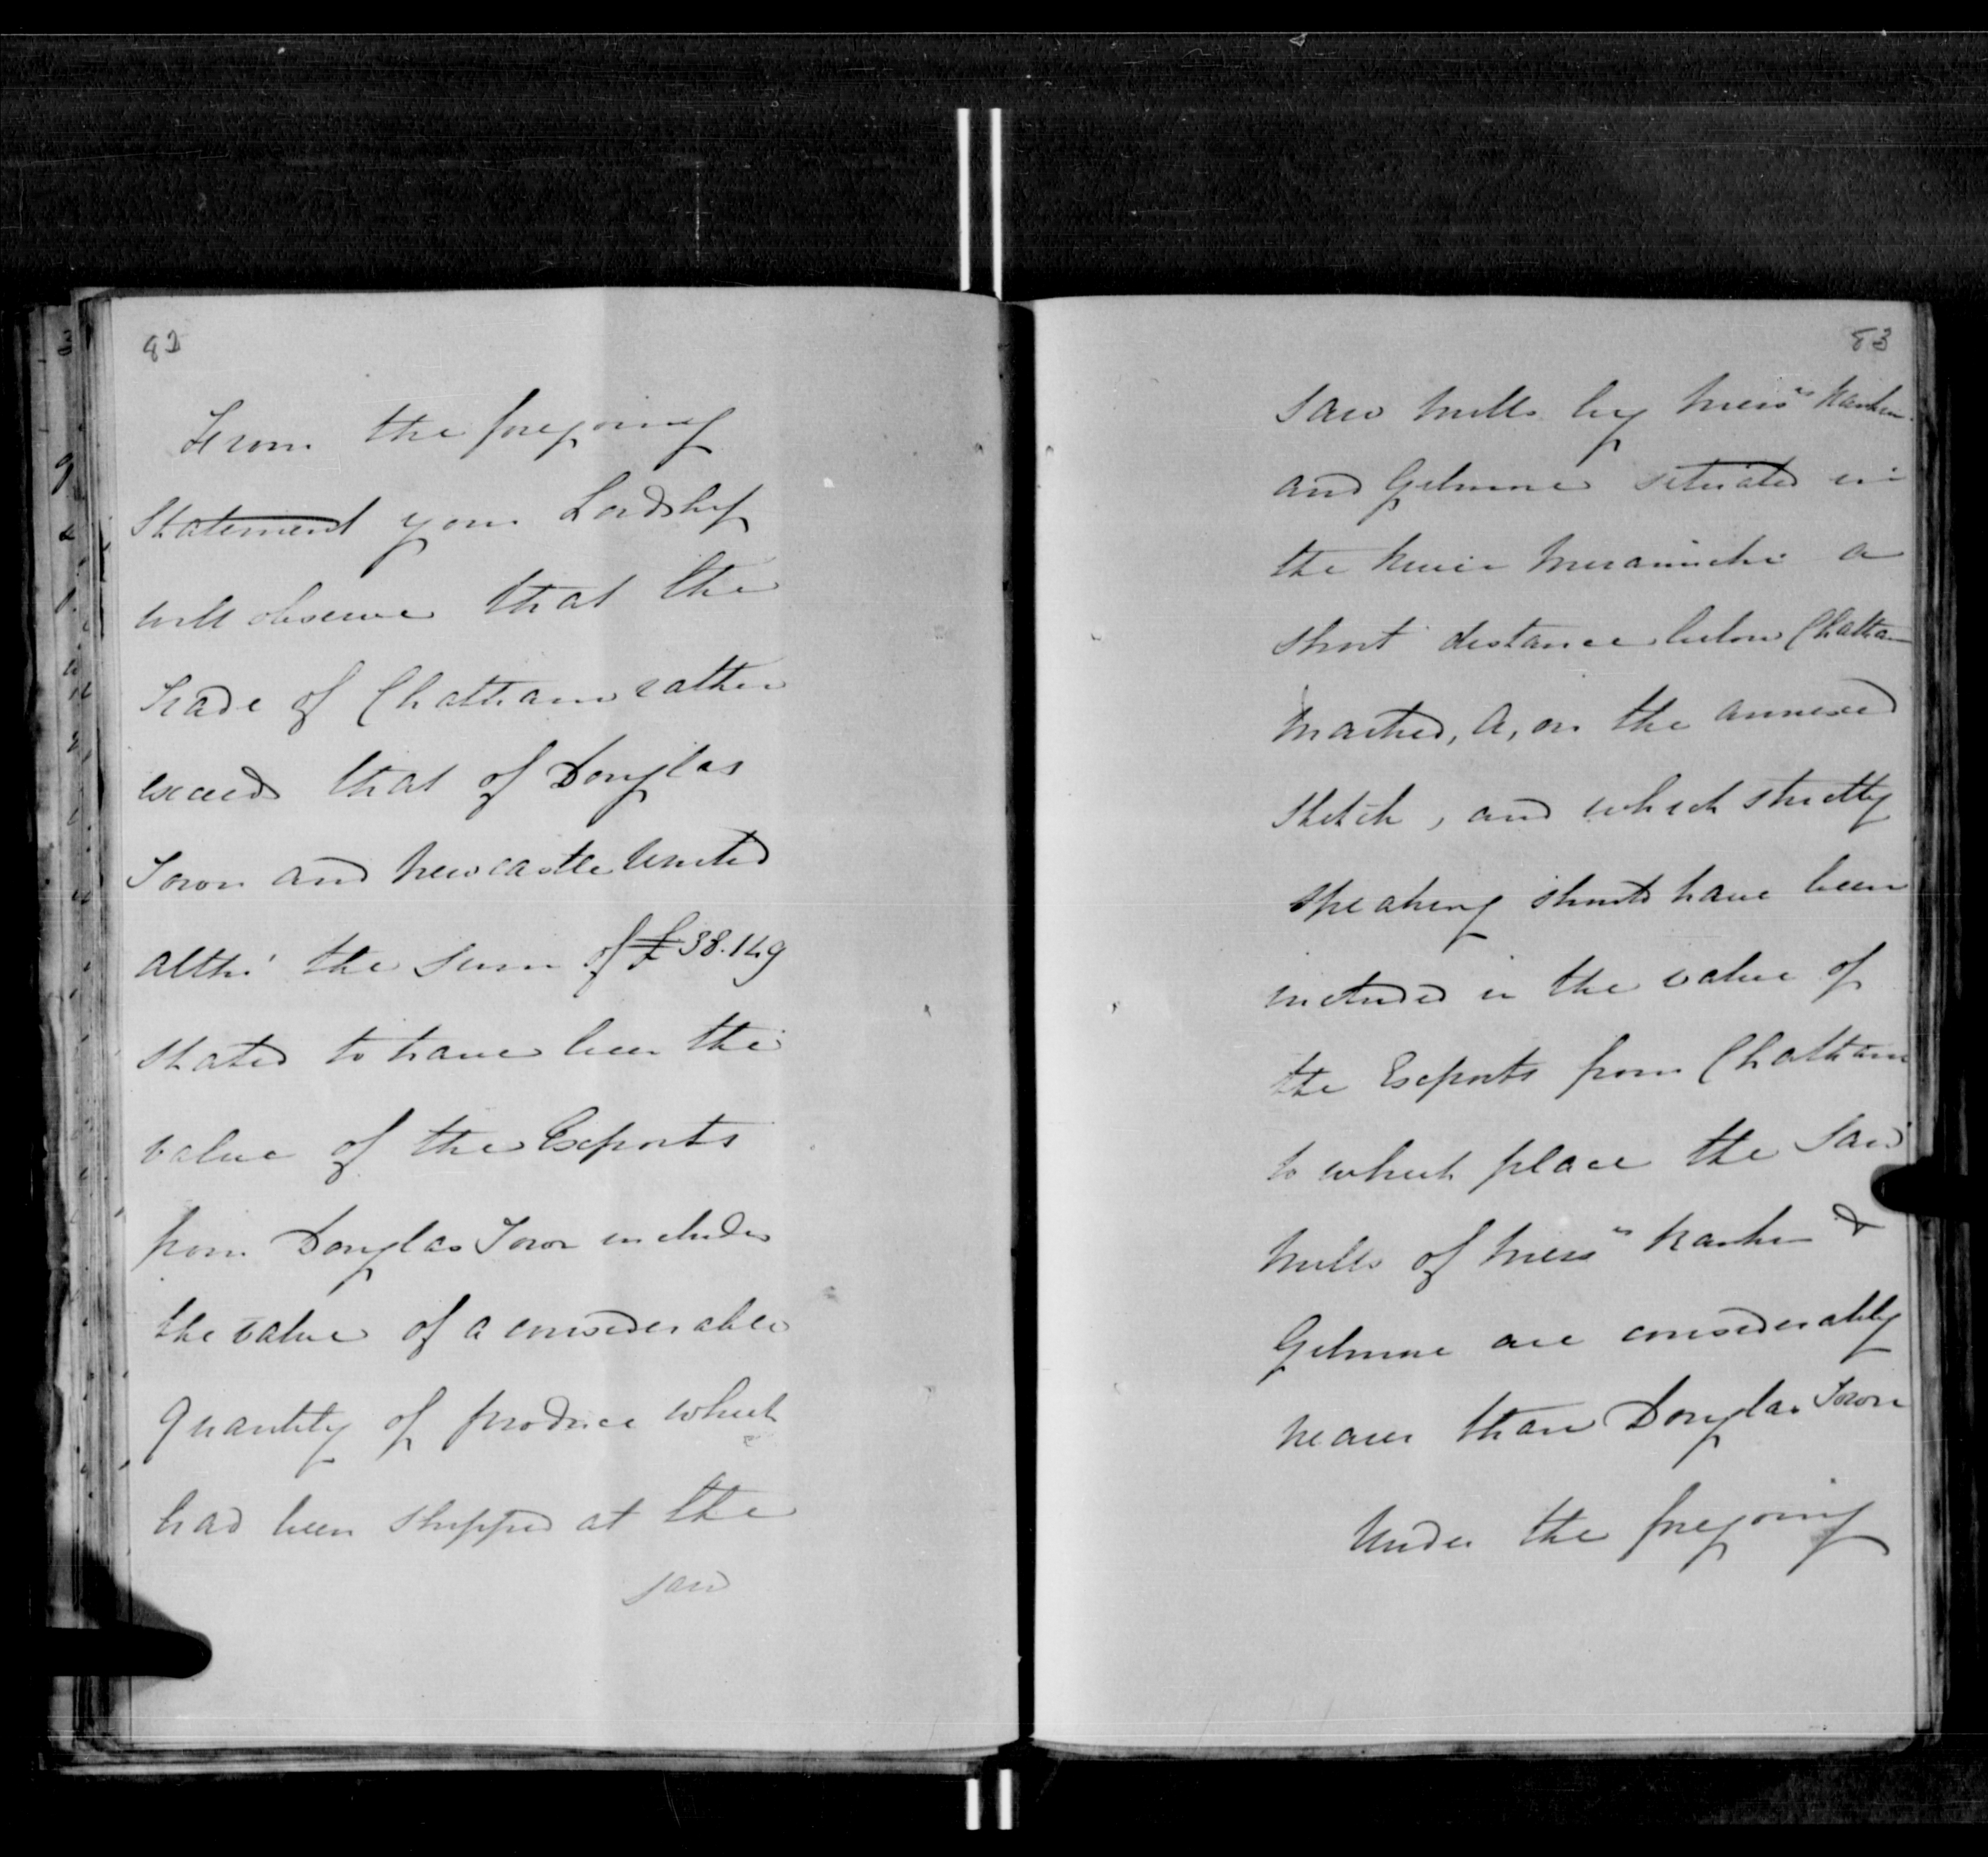 82
From the foregoing
Statement your Lordship
will observe that the
Trade of Chatham rather
exceeds that of Douglas
Town and Newcastle United
altho' the sum of £38.149
stated to have been the
value of the Exports
from Douglas Town includes
the value of a considerable
quantity of produce which
had been shipped at the
saw
83
Saw Mills by Messrs Rankin
and Gilmour situated in
the River Miramichi a
short distance below Chatham
marked, A, on the annexed
Sketch, and which strictly
speaking should have been
included in the value of
the Exports from Chatham
to which place the Saw
Mills of Messrs Rankin &
Gilmour are considerably
nearer than Douglas Town
Under the foregoing